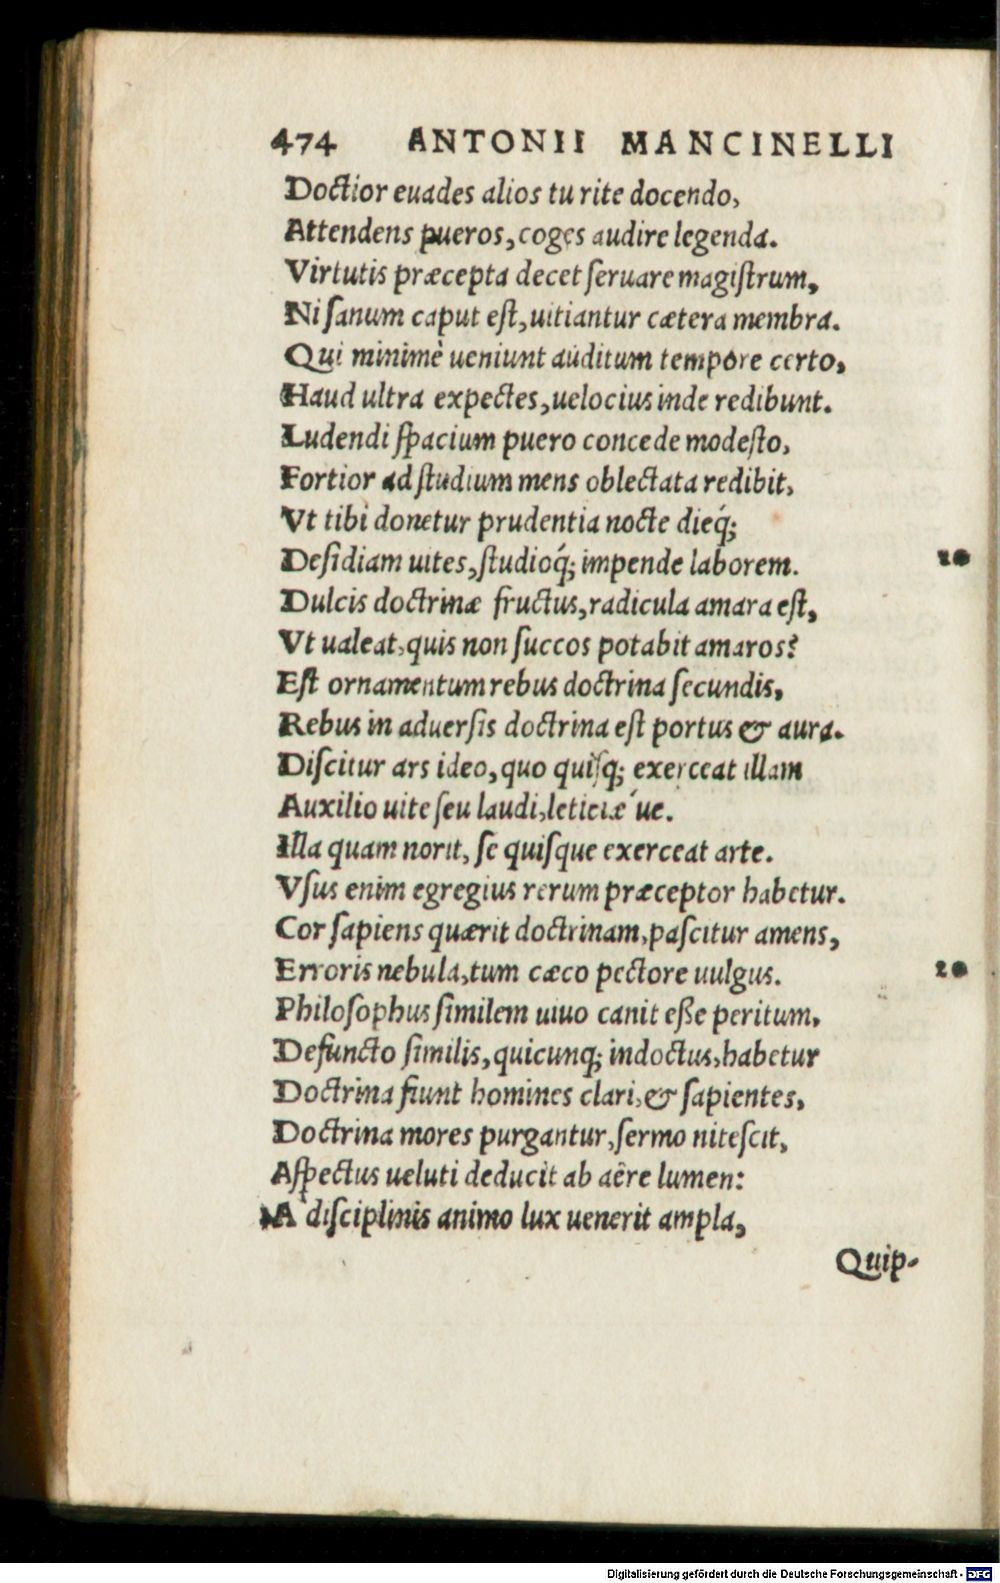 474 ANTONII MANCINELLI
Doctior euades alios tu rite docendo,
Attendens pueros, coges audire legenda.
Virtutis præcepta decet ſeruare magiſtrum,
Ni ſanum caput eſt, uitiantur cætera membra.
Qui minimè ueniunt auditum tempore certo,
Haud ultra expectes, uelocius inde redibunt.
Ludendi ſpacium puero concede modeſto,
Fortior ad ſtudium mens oblectata redibit,
Vt tibi donetur prudentia nocte dieq́;
Deſidiam uites, ſtudioq́; impende laborem. 10
Dulcis doctrinæ fructus, radicula amara eſt,
Vt ualeat, quis non ſuccos potabit amaros?
Eſt ornamentum rebus doctrina ſecundis,
Rebus in aduerſis doctrina eſt portus & aura.
Diſcitur ars ideo, quo quiſq; exerceat illam
Auxilio uite ſeu laudi, leticiæ´ue.
Illa quam norit, ſe quiſque exerceat arte.
Vſus enim egregius rerum præceptor habetur.
Cor ſapiens quærit doctrinam, paſcitur amens,
Erroris nebula, tum cæco pectore uulgus. 20
Philoſophus ſimilem uiuo canit eße peritum,
Defuncto ſimilis, quicunq; indoctus, habetur
Doctrina fiunt homines clari, & ſapientes,
Doctrina mores purgantur, ſermo niteſcit,
Aſpectus ueluti deducit ab aëre lumen:
A diſciplinis animo lux uenerit ampla,
Quip-
Digitalisierung gefördert durch die Deutsche Forschungsgemeinschaft - DFG